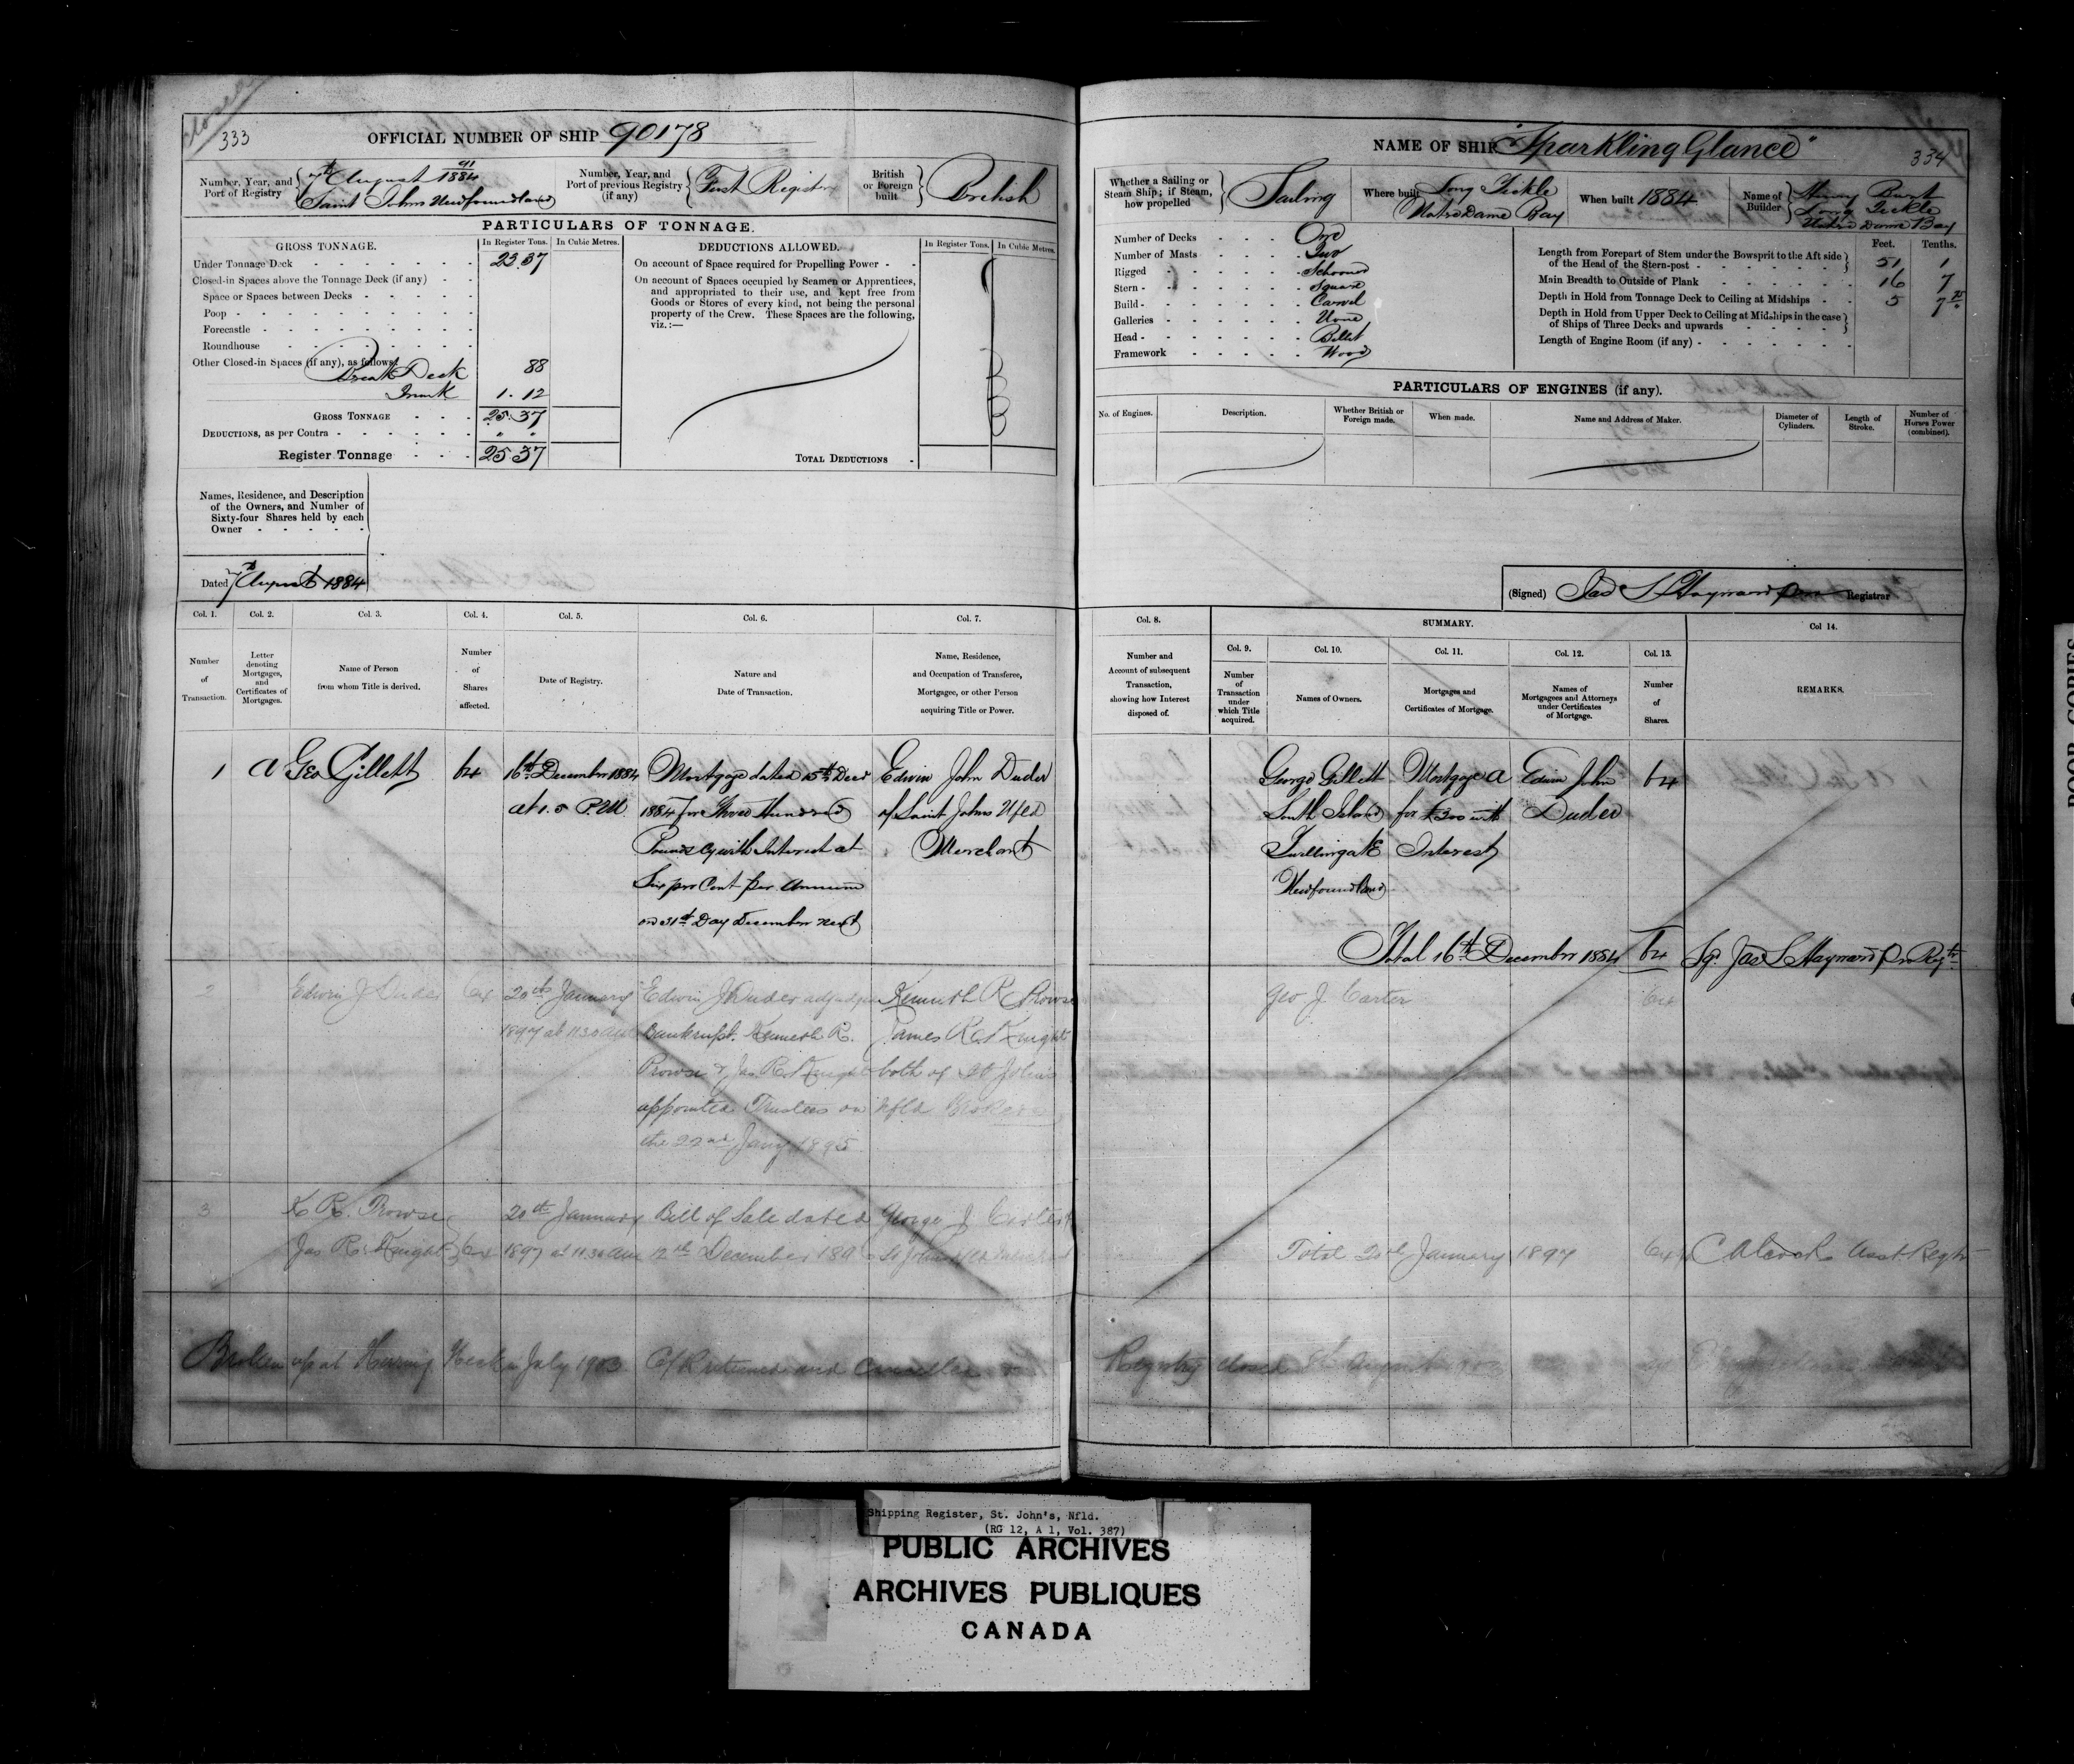 closed
333
OFFICIAL NUMBER OF SHIP 90178
Number, Year, and Port of Registry
7th August 91/1884
Saint Johns Newfoundland
Number, Year, and Port of previous Registry (if any)
First Registry
British or Foreign built
British
PARTICULARS OF TONNAGE.
GROSS TONNAGE.
In Register Tons.
In Cubic Metres.
DEDUCTIONS ALLOWED.
In Register Tons.
In Cubic Metres.
Under Tonnage Deck 23.37
Closed-in Spaces above the Tonnage Deck (if any)
Space or Spaces between Decks
Poop
Forecastle
Roundhouse
Other Closed-in Spaces (if any), as follows
Break Deck 88
Trunk 1.12
GROSS TONNAGE 25.37
DEDUCTIONS, as per Contra " "
Register Tonnage 25.37
On account of Space required for Propelling Power
On account of Spaces occupied by Seamen or Apprentices,
and appropriated to their use, and kept free from
Goods or Stores of every kind, not being the personal
property of the Crew. These Spaces are the following,
viz.:—
TOTAL DEDUCTIONS
Names, Residence, and Description
of the Owners, and Number of
Sixty-four Shares held by each
Owner
Dated 7th August 1884
Col. 1.
Col. 2.
Col. 3.
Col. 4.
Col. 5.
Col. 6.
Col. 7.
Number of Transaction.
Letter denoting Mortgages, and Certificates of Mortgages.
Name of Person from whom Title is derived.
Number of Shares affected.
Date of Registry.
Nature and Date of Transaction.
Name, Residence, and Occupation of Transferee, Mortgagee, or other Person acquiring Title or Power.
1 A Geo Gillett 64
16th December 1884
at 1.5 P.M.
Mortgage dated 15th Decr
1884 for Three Hundred
Pounds Cy with Interest at
Six pro Cent per Annum
on 31st Day December next
Edwin John Duder
of Saint Johns Nfld
Merchant
2 Edwin J Duder 64
20th January
1897 at 11.30 am
Edwin J Duder adjudged
Bankrupt. Kenneth R.
Prowse & Jas R. Knight
appointed Trustees on
the 22nd Jany 1895
Kenneth R Prowse
James R. Knight
both of St Johns
Nfld Brokers
3 K R. Prowse
Jas R. Knight 64
20th January
1897 at 11.30 am
Bill of Sale dated
12th December 189
George J Carter
St Johns Nfld Merchant
Broken up at Herring Neck in July 1903 C/R returned and cancelled
NAME OF SHIP "Sparkling Glance"
334
Whether a Sailing or Steam Ship; if Steam, how propelled
Sailing
Where built
Long Tickle
Notre Dame Bay
When built 1884
Name of Builder
Henry Burt
Long Tickle
Notre Dame Bay
Number of Decks One
Number of Masts Two
Rigged Schooner
Stern Square
Build Carvel
Galleries None
Head Billet
Framework Wood
Feet. Tenths.
Length from Forepart of Stem under the Bowsprit to the Aft side
of the Head of the Stern-post 51 1
Main Breadth to Outside of Plank 16 7
Depth in Hold from Tonnage Deck to Ceiling at Midships 5 7
Depth in Hold from Upper Deck to Ceiling at Midships in the case
of Ships of Three Decks and upwards
Length of Engine Room (if any)
PARTICULARS OF ENGINES (if any).
No. of Engines.
Description.
Whether British or Foreign made.
When made.
Name and Address of Maker.
Diameter of Cylinders.
Length of Stroke.
Number of Horses Power (combined).
(Signed) Jas S Hayward pro Registrar
Col. 8.
SUMMARY.
Col 14.
Number and Account of subsequent Transaction, showing how Interest disposed of.
Col. 9.
Col. 10.
Col. 11.
Col. 12.
Col. 13.
Number of Transaction under which Title acquired.
Names of Owners.
Mortgages and Certificates of Mortgage.
Names of Mortgagees and Attorneys under Certificates of Mortgage.
Number of Shares.
REMARKS.
George Gillett
South Island
Twillingate
Newfoundland
Mortgage A
for £300 with
Interest
Edwin John
Duder
64
Total 16th December 1884 64 Sgd. Jas S Hayward Pro Regtr
Geo J. Carter 64
Total 20th January 1897 64 C Alcock Asst Regtr
Registry closed 8th August 1903
Shipping Register, St. John's, Nfld.
(RG 12, A 1, Vol. 387)
PUBLIC ARCHIVES
ARCHIVES PUBLIQUES
CANADA
POOR COPIES